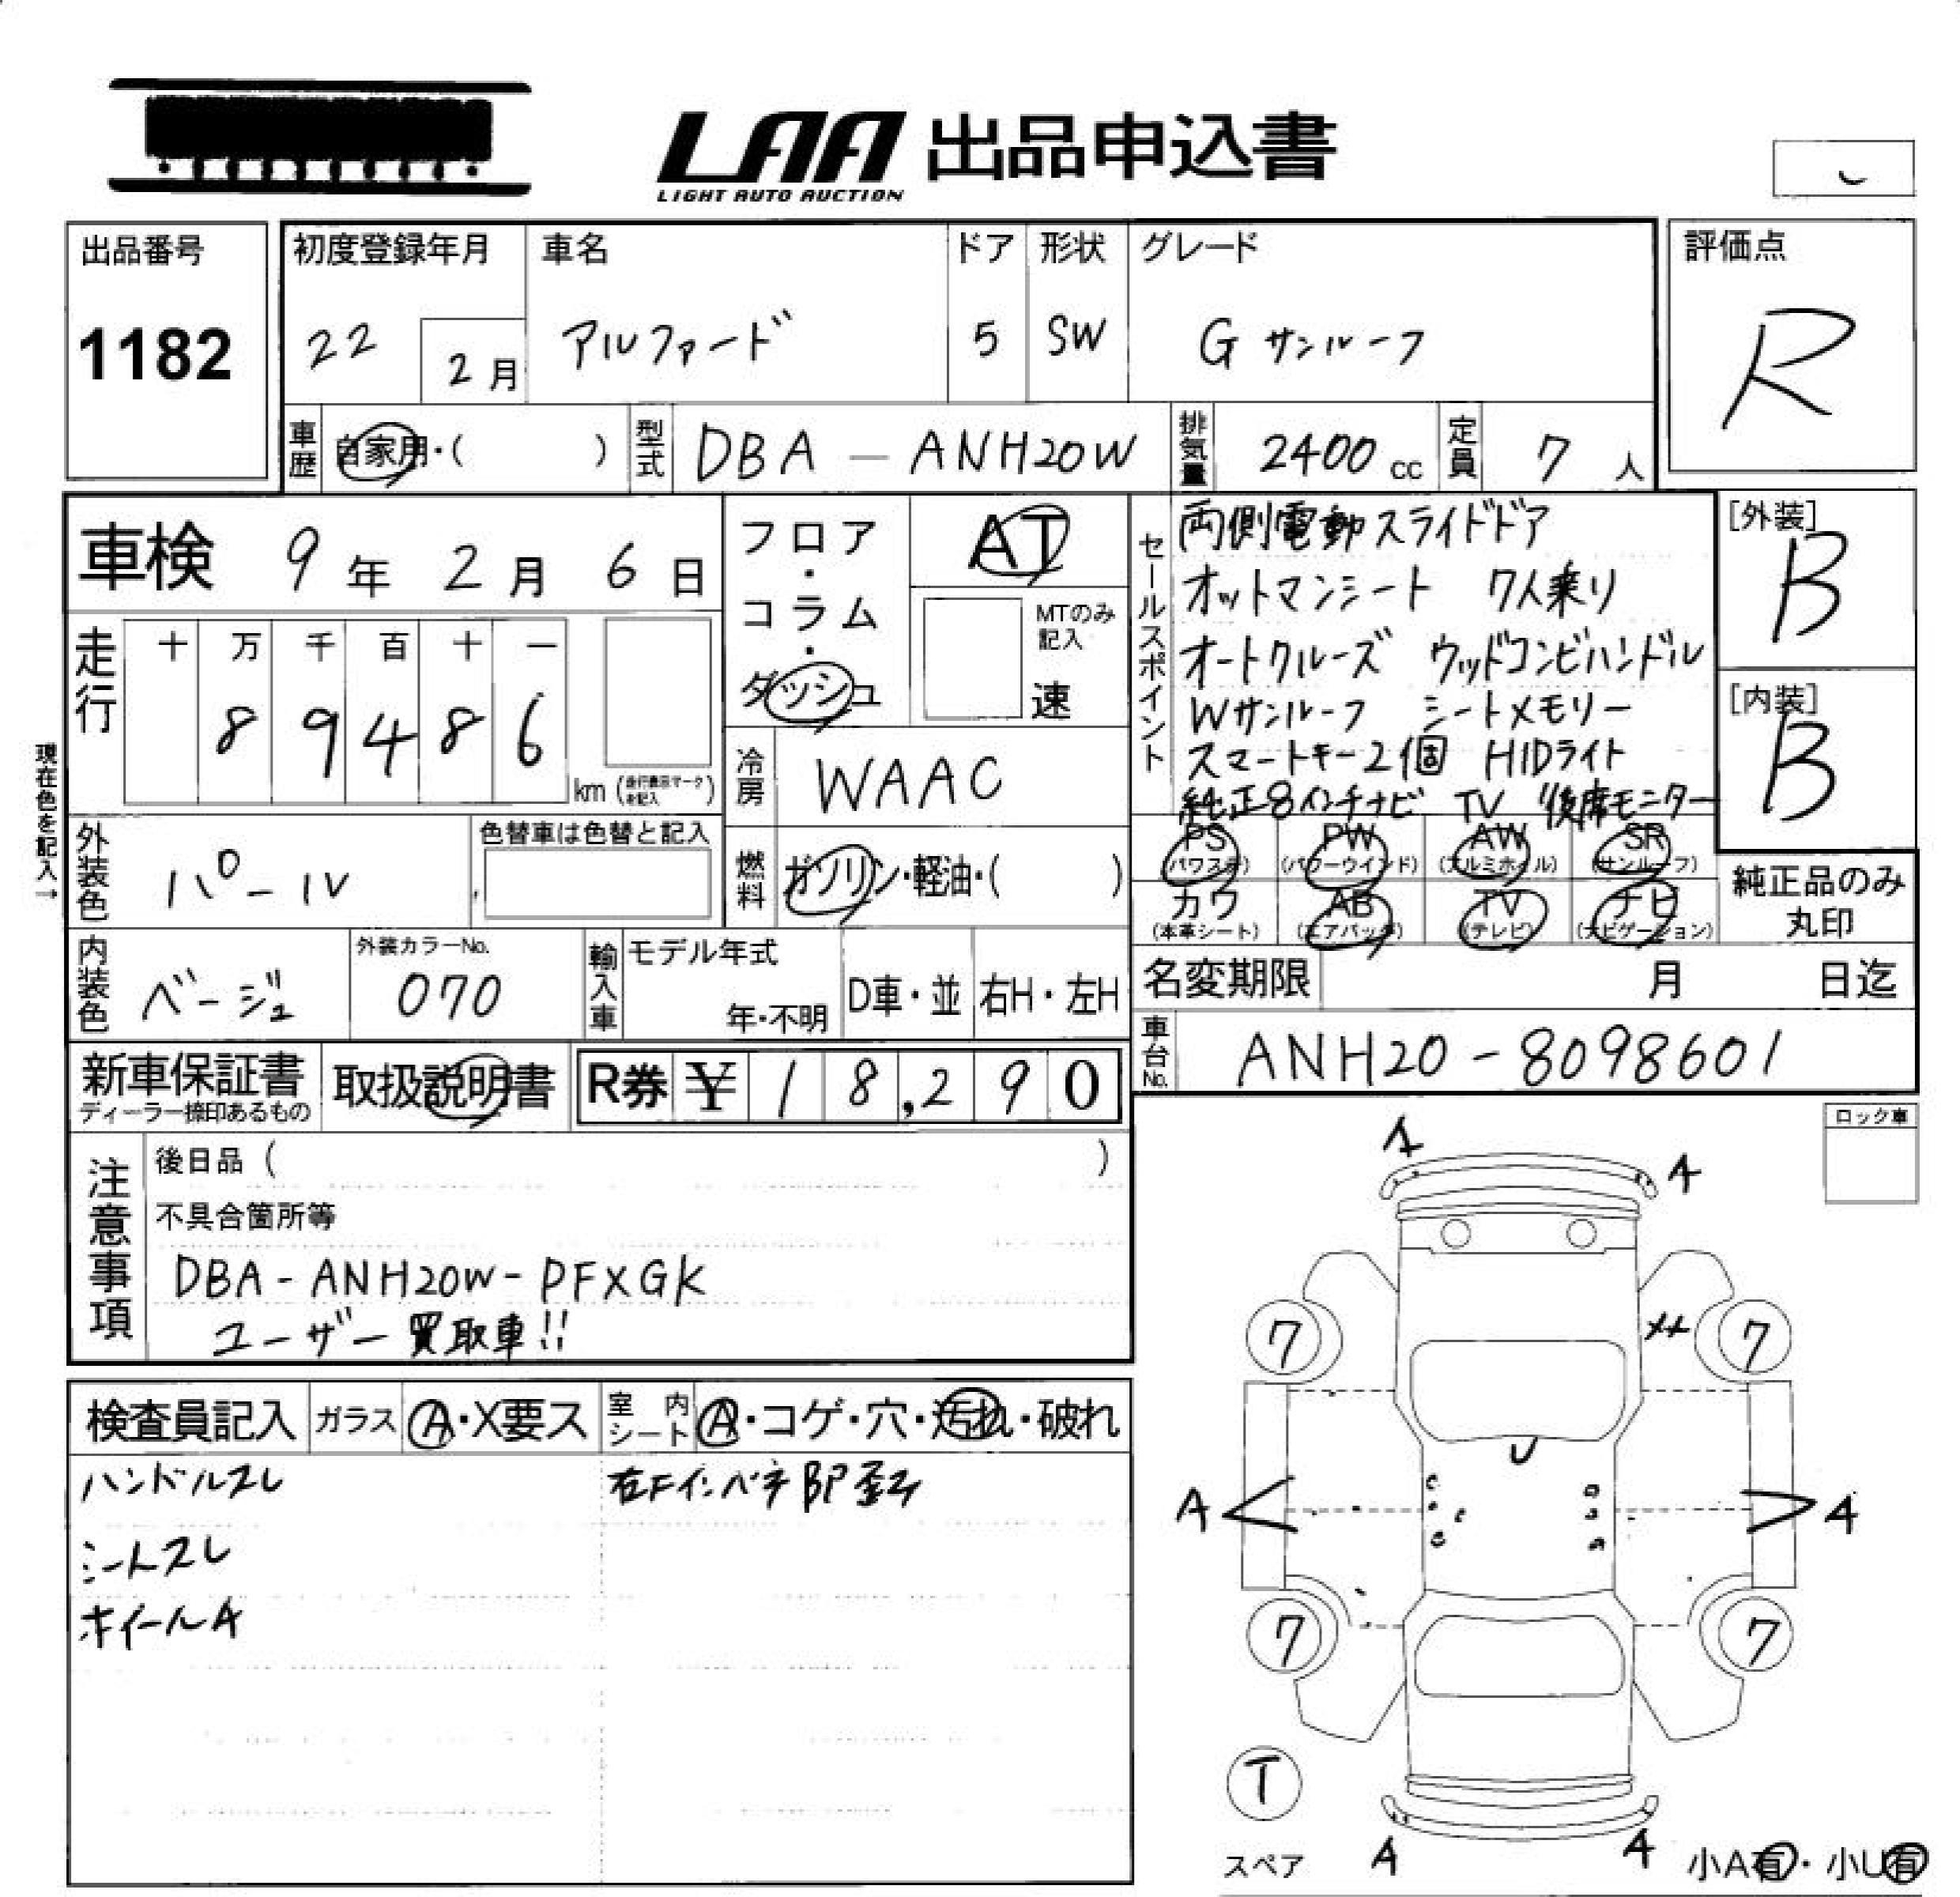 LAA 出品申込書
LIGHT AUTO AUCTION
出品番号
1182
初度登録年月
22
2月
車名
アルファード
ドア
5
形状
SW
グレード
G サンルーフ
評価点
R
車歴
自家用・( )
型式
DBA - ANH20W
排気量
2400 cc
定員
7 人
車検 9年 2月 6日
フロア・コラム・ダッシュ
AT
MTのみ記入
速
走行
十 万 千 百 十 一
8 9 4 8 6
km (走行表示マークを記入)
冷房
WAAC
現在色を記入→
外装色
パール
色替車は色替と記入
燃料
ガソリン・軽油・( )
内装色
ベージュ
外装カラーNo.
070
輸入車
モデル年式
年・不明
D車・並
右H・左H
セールスポイント
両側電動スライドドア
オットマンシート 7人乗り
オートクルーズ ウッドコンビハンドル
Wサンルーフ シートメモリー
スマートキー2個 HIDライト
純正8インチナビ TV 後席モニター
[外装]
B
[内装]
B
PS PW AW SR
(パワステ) (パワーウインド) (アルミホイル) (サンルーフ)
カワ AB TV ナビ
(本革シート) (エアバッグ) (テレビ) (ナビゲーション)
純正品のみ
丸印
名変期限 月 日迄
車台No.
ANH20-8098601
新車保証書
ディーラー捺印あるもの
取扱説明書
R券 ¥ 18,290
注意事項
後日品 ( )
不具合箇所等
DBA-ANH20W-PFXGK
ユーザー買取車!!
検査員記入
ガラス
A・X要ス
室内シート
A・コゲ・穴・汚れ・破れ
ハンドルスレ
シートスレ
ホイールA
右Fインパネ部歪み
ロック車
A
A
7
7
U
A
A
7
7
T
スペア
A
A
小A有・小U有